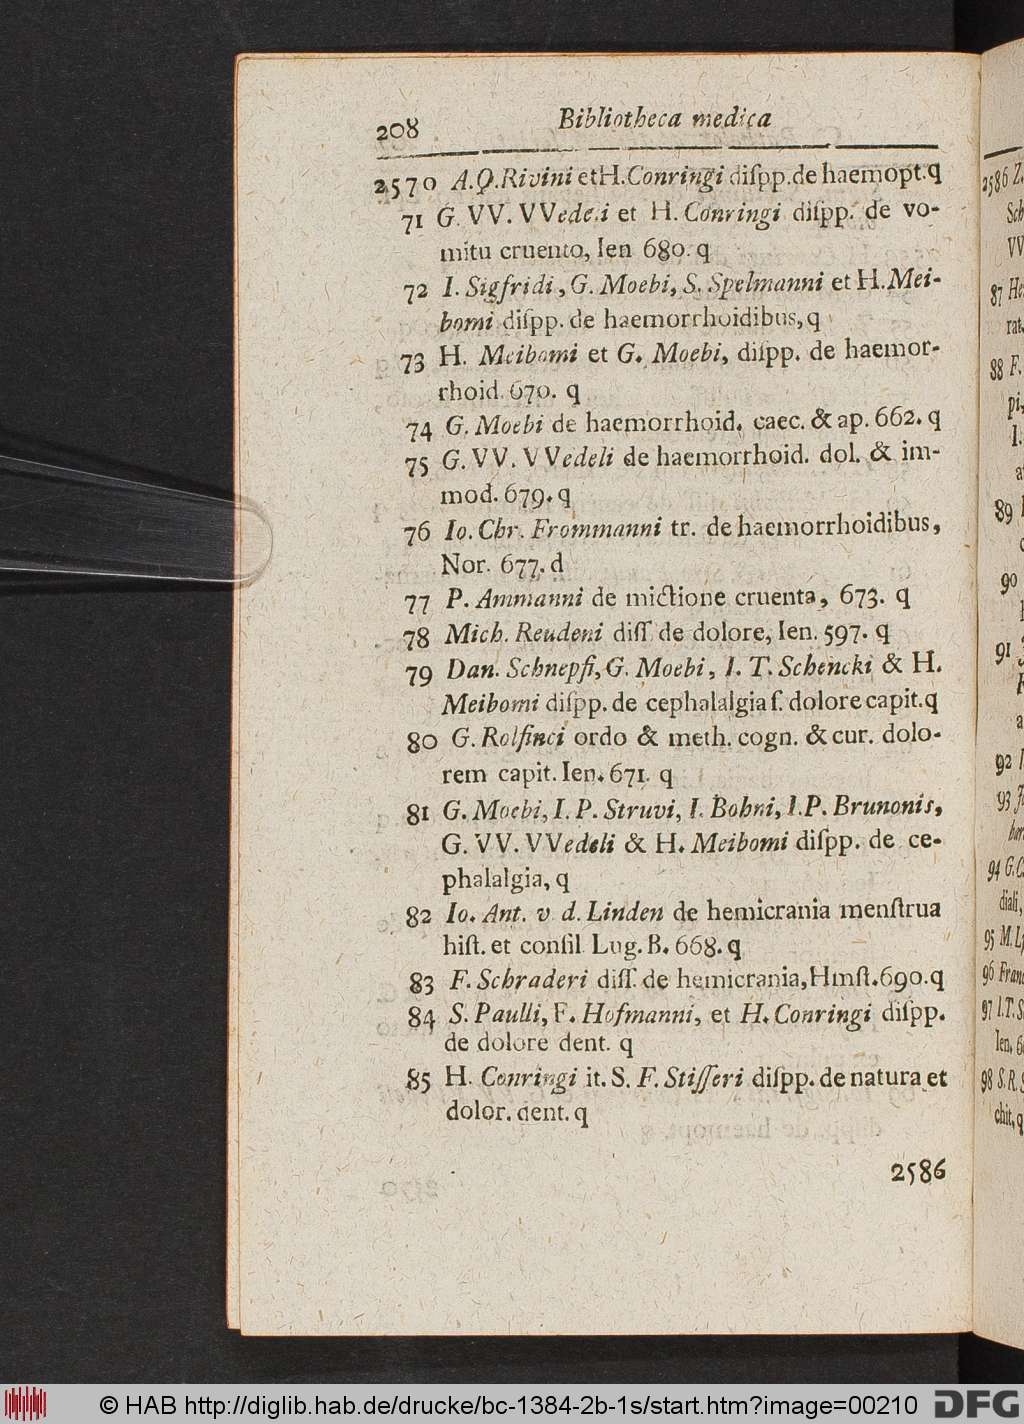 208 Bibliotheca medica
2570 A.Q.Rivini et H.Conringi diſpp.de haemopt.q
71 G. VV. VVedeli et H. Conringi diſpp. de vo-
mitu cruento, Ien 680. q
72 I. Sigfridi, G. Moebi, S. Spelmanni et H.Mei-
bomi diſpp. de haemorrhoidibus, q
73 H. Meibomi et G. Moebi, diſpp. de haemor-
rhoid. 670. q
74 G. Moebi de haemorrhoid. caec. & ap. 662. q
75 G. VV. VVedeli de haemorrhoid. dol. & im-
mod. 679. q
76 Io. Chr. Frommanni tr. de haemorrhoidibus,
Nor. 677. d
77 P. Ammanni de mictione cruenta, 673. q
78 Mich. Reudeni diſſ de dolore, Ien. 597. q
79 Dan. Schnepfi, G. Moebi, I. T. Schencki & H.
Meibomi diſpp. de cephalalgia ſ. dolore capit.q
80 G. Rolfinci ordo & meth. cogn. & cur. dolo-
rem capit. Ien. 671. q
81 G. Moebi, I. P. Struvi, I. Bohni, I.P. Brunonis,
G. VV. VVedeli & H. Meibomi diſpp. de ce-
phalalgia, q
82 Io. Ant. v d. Linden de hemicrania menſtrua
hiſt. et conſil Lug. B. 668. q
83 F. Schraderi diſſ. de hemicrania, Hmſt. 690. q
84 S. Paulli, F. Hofmanni, et H. Conringi diſpp.
de dolore dent. q
85 H. Conringi it. S. F. Stiſſeri diſpp. de natura et
dolor. dent. q
2586
2586 Z.
Sch
VV
87 He
rat.
88 F.
pi,
I.
a
89
90
91
a
92 I
93
94 G.C
diali,
95 M.L
96 Franc
97 I.T.S
Ien. 6
98 S.R.
chit, q
© HAB http://diglib.hab.de/drucke/bc-1384-2b-1s/start.htm?image=00210
DFG